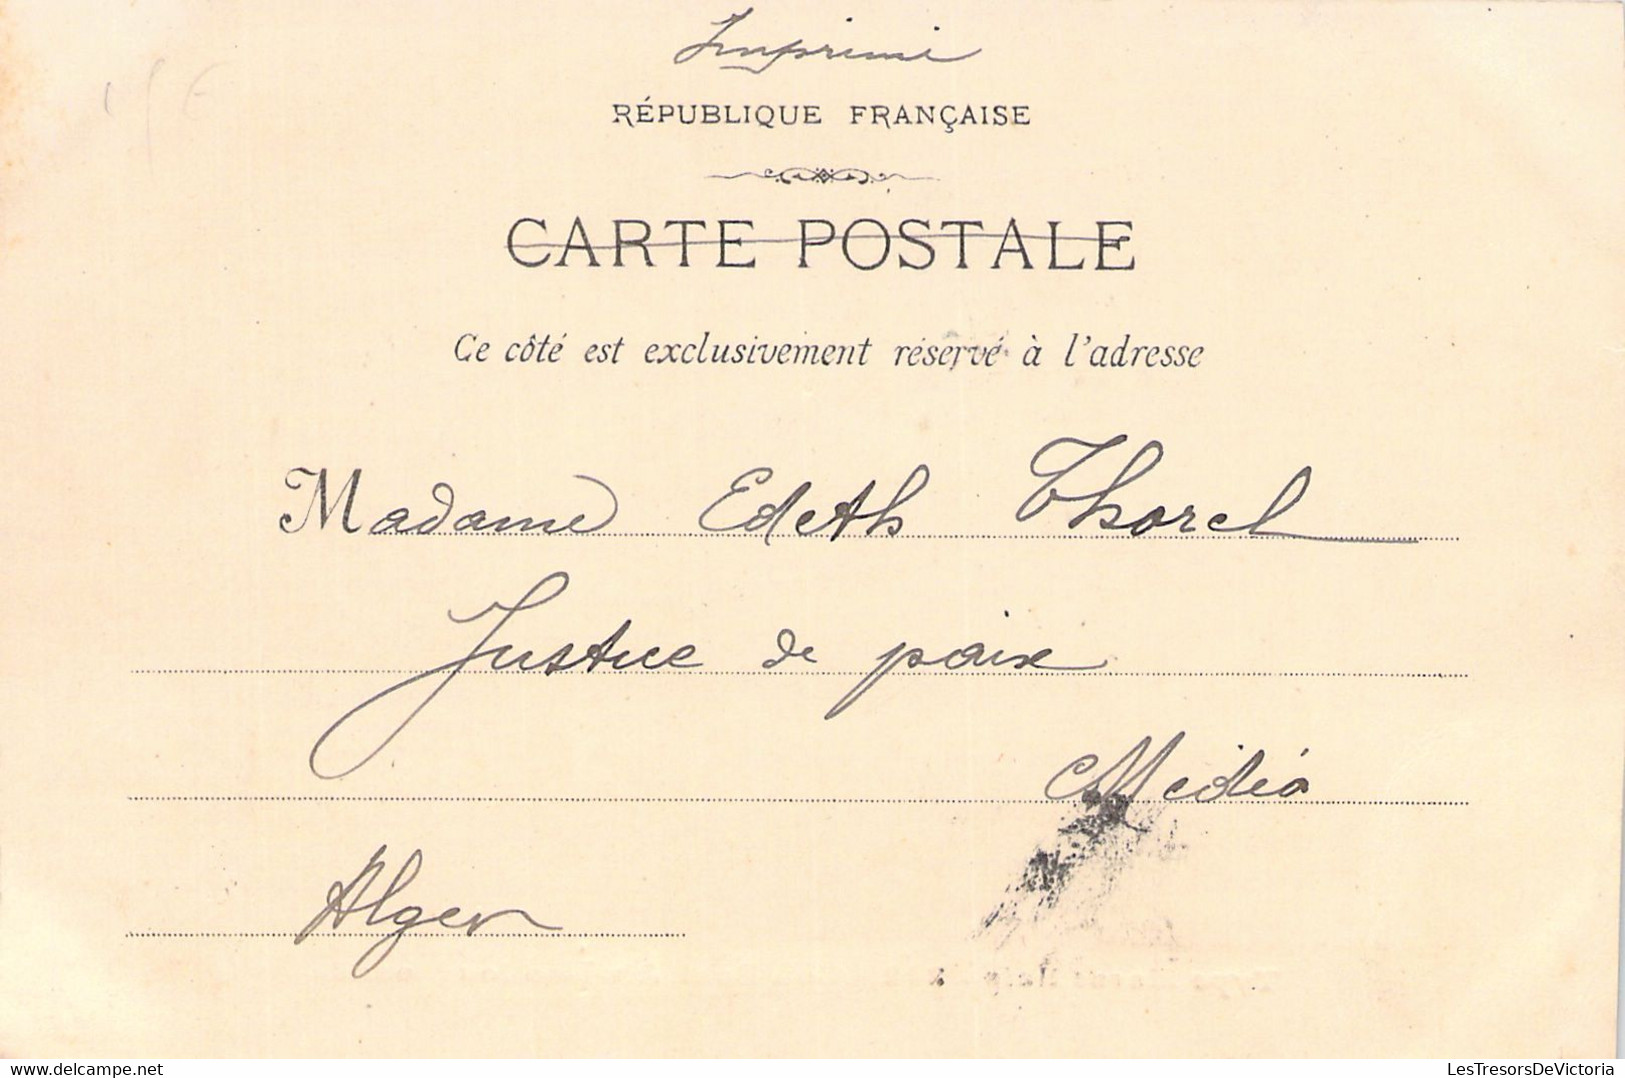 Imprimé
RÉPUBLIQUE FRANÇAISE
CARTE POSTALE
Ce côté est exclusivement réservé à l'adresse
Madame Edith Thorel
Justice de paix
Médéa
Alger
LesTresorsDeVictoria
delcampe.net